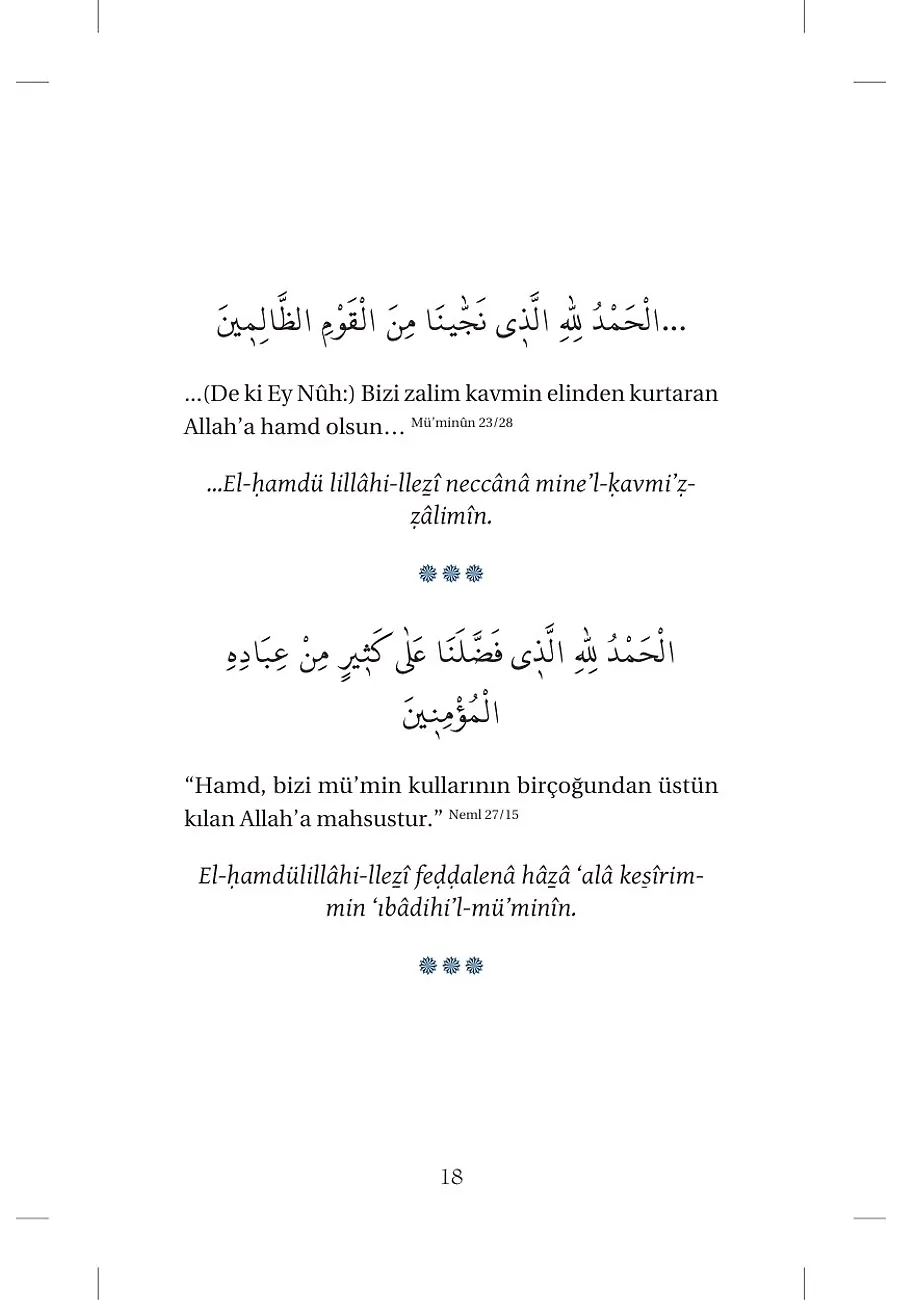 ...الْحَمْدُ لِلّٰهِ الَّذ۪ى نَجّٰينَا مِنَ الْقَوْمِ الظَّالِم۪ينَ
...(De ki Ey Nûh:) Bizi zalim kavmin elinden kurtaran
Allah’a hamd olsun… Mü’minûn 23/28
...El-ḥamdü lillâhi-lleẕî neccânâ mine’l-ḳavmi’ẓ-
ẓâlimîn.
الْحَمْدُ لِلّٰهِ الَّذ۪ى فَضَّلَنَا عَلٰى كَث۪يرٍ مِنْ عِبَادِهِ
الْمُؤْمِن۪ينَ
“Hamd, bizi mü’min kullarının birçoğundan üstün
kılan Allah’a mahsustur.” Neml 27/15
El-ḥamdülillâhi-lleẕî feḍḍalenâ hâẕâ ‘alâ kes̱îrim-
min ‘ıbâdihi’l-mü’minîn.
18